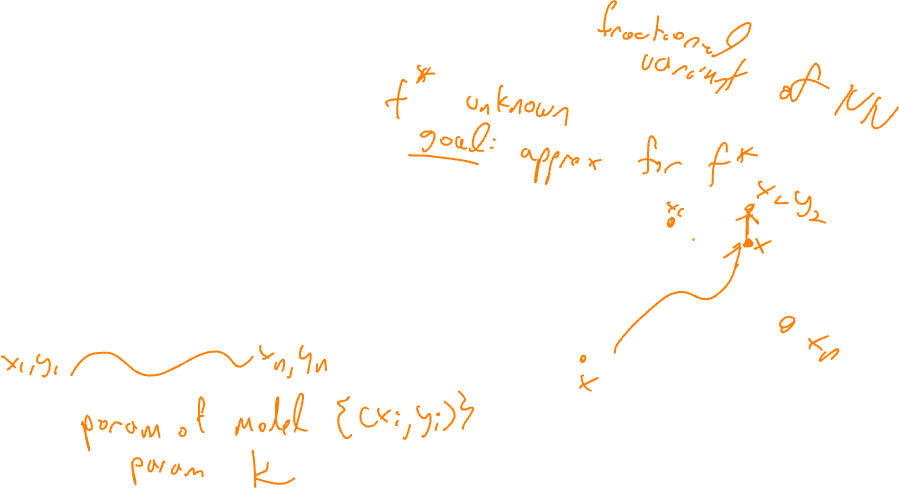 fractional
variant of NN
f* unknown
goal: approx for f*
x₂ y₂
x₁
x
xₙ
x
x₁,y₁ xₙ,yₙ
param of model {(xᵢ,yᵢ)}
param K